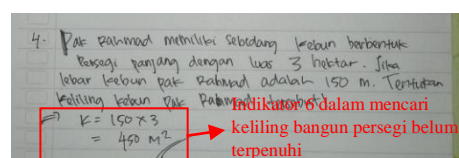 4. Pak Rahmad memiliki sebidang kebun berbentuk
Persegi panjang dengan luas 3 hektar. Jika
lebar kebun pak Rahmad adalah 150 m. Tentukan
keliling kebun Pak Rahmad tersebut!
⇒ K = 150 x 3
= 450 M²
Indikator 6 dalam mencari
keliling bangun persegi belum
terpenuhi